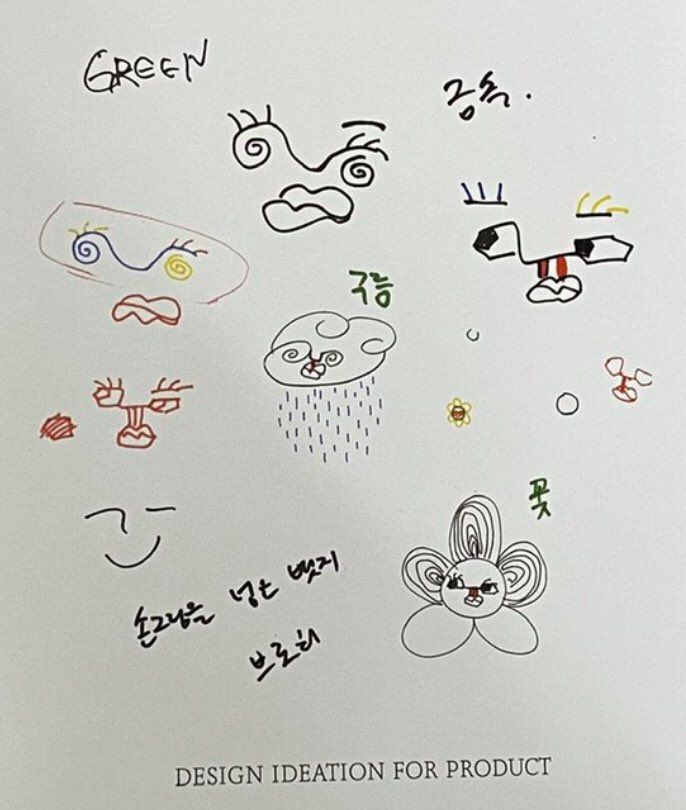 GREEN
금속.
구름
꽃
손그림을 넣은 뱃지
브로치
DESIGN IDEATION FOR PRODUCT